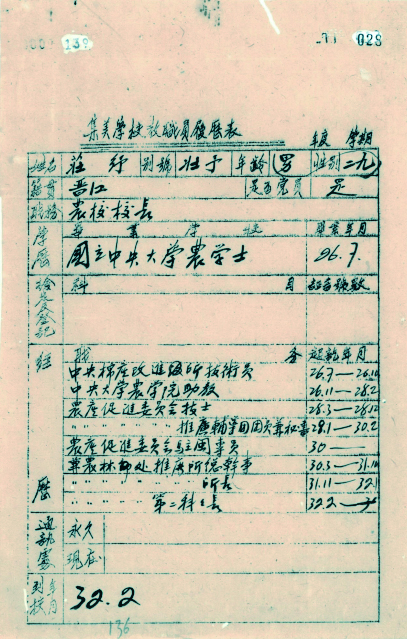 139
028
集美学校教職員履歷表
年度 学期
姓名 莊紓 別號 壮予 年齡 男 性别 二九
籍貫 晋江 是否党员 是
職務 農校校長
学歷 畢業学校 畢業年月
國立中央大学農学士 26.7.
檢定登記 科目 証書號数
経歷 職务 起訖年月
中央棉産改進所技術員 26.7—26.10
中央大学農学院助教 26.11—28.2
農産促進委員会技士 28.3—28.12
推廣輔導团团员兼秘書 29.1—30.2
農産促進委員会 專員 30—
農林部 推廣所總幹事 30.3—31.10
〃 〃 〃 〃 所長 31.11—32.1
〃 〃 〃 第二科科長 32.2—
通訊處 永久
現在
到校年月 32.2
136